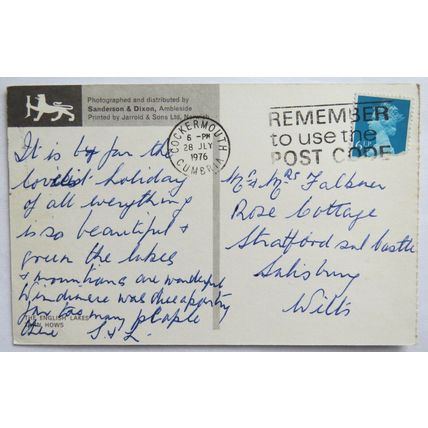 Photographed and distributed by
Sanderson & Dixon, Ambleside
Printed by Jarrold & Sons Ltd, Norwich
COCKERMOUTH
6 - PM
28 JLY
1976
CUMBRIA
REMEMBER
to use the
POST CODE
It is by far the
loveliest holiday
of all everything
is so beautiful &
green the lakes
& mountians are wonderful
Windimere was
far too many people
there
THE ENGLISH LAKES
HOWS
Mr & Mrs Falkner
Rose Cottage
Stratford sub Castle
Salisbury
Wilts